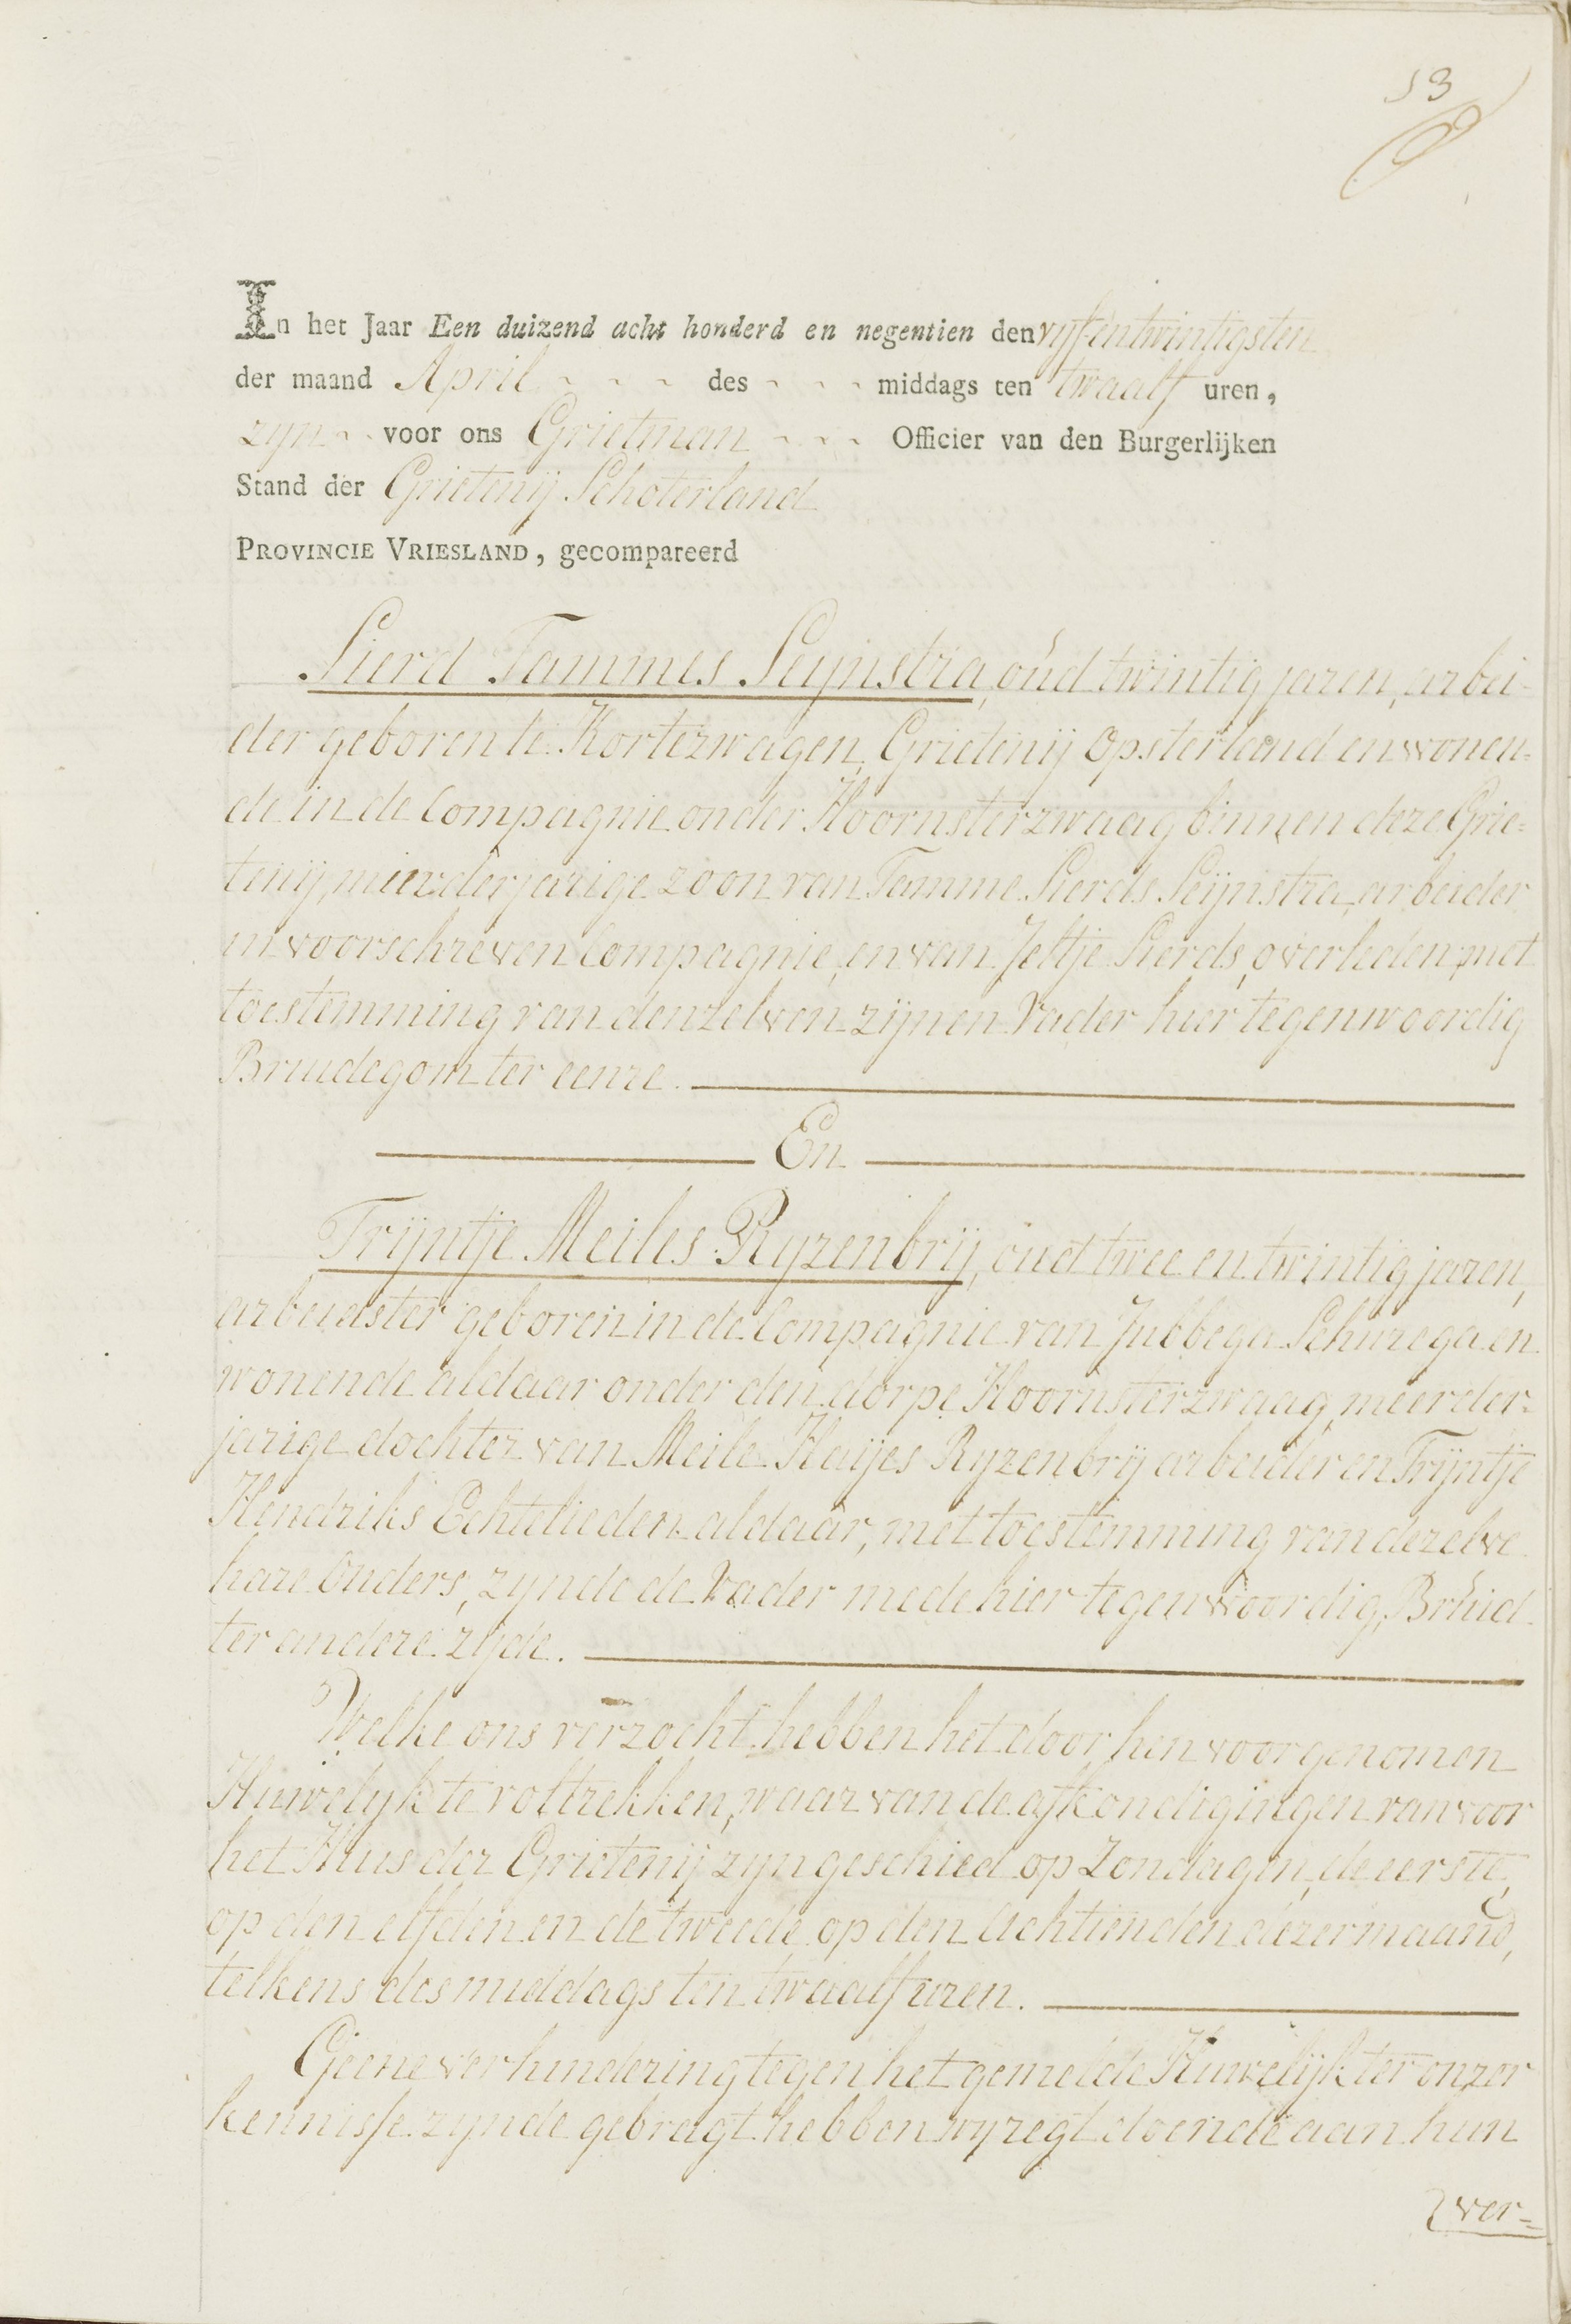 53
In het Jaar Een duizend acht honderd en negentien den vyfentwintigsten
der maand April des middags ten twaalf uren,
zyn voor ons Grietman Officier van den Burgerlijken
Stand der Grietenij Schoterland
PROVINCIE VRIESLAND, gecompareerd
Sierd Tammes Seijnstra, oud twintig jaren, arbei-
der geboren te Kortezwagen, Grietenij Opsterland en wonen-
de in de Compagnie onder Hoornsterzwaag binnen deze Grie=
tenij, minderjarige zoon van Tamme Sierds Seijnstra, arbeider
in voorschreven Compagnie, en van Jeltje Sierds, overleden, met
toestemming van denzelven zijnen Vader hier tegenwoordig
Bruidegom ter eenre.
En
Trijntje Meiles Ryzenbrij, oud twee en twintig jaren,
arbeidster geboren in de Compagnie van Jubbega Schurega en
wonende aldaar onder den dorpe Hoornsterzwaag, meerder=
jarige dochter van Meile Haijes Ryzenbrij arbeider en Trijntje
Hendriks Echtelieden aldaar, met toestemming van dezelve
hare Ouders, zynde de Vader mede hier tegenwoordig, Bruid
ter andere zijde.
Welke ons verzocht hebben het door hen voorgenomen
Huwelyk te voltrekken, waar van de afkondigingen van voor
het Huis der Grietenij zyn geschied op Zondagen, de eerste,
op den elfden en de tweede op den Achttienden dezer maand,
telkens des middags ten twaalf uren.
Geene verhindering tegen het gemelde Huwelijk ter onzer
kennisse zynde gebragt hebben wy regt doende aan hun
ver=